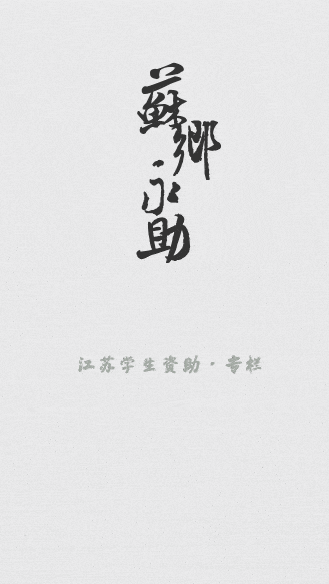 蘇鄉永助
江苏学生资助·专栏